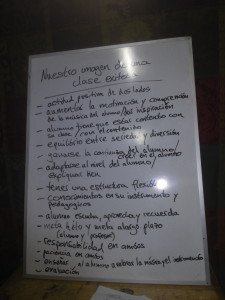 Nuestro imagen de una
clase exitosa
- actitud positiva de dos lados
- aumentar la motivación y comprensión
de la música del alumno/dar inspiración
- alumno tiene que estar contento con
su clase / con el contenido
- equilibrio entre seriedad y diversión
- ganarse la confianza del alumno/
creer en el alumno
- adaptarse al nivel del alumno/
explicar bien
- tener una estructura flexible
- conocimientos en su instrumento y
pedagógicos
- alumno escucha, aprende y recuerda
- meta largo plazo
(alumno y profesor)
- responsabilidad en ambos
- paciencia en ambos
- enseñar al alumno valorar la música y el instrumento
- evaluación